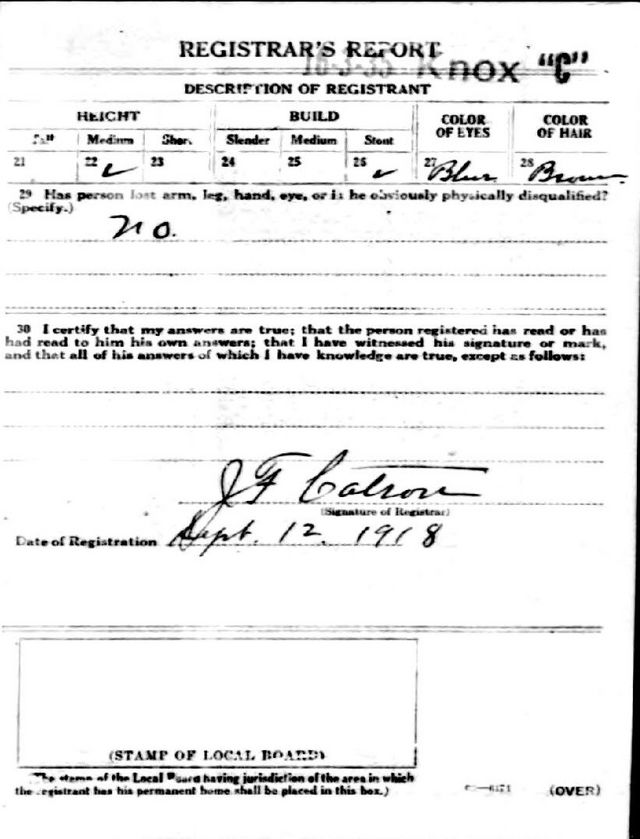 REGISTRAR'S REPORT
16-3-35 Knox "C"
DESCRIPTION OF REGISTRANT
HEIGHT BUILD COLOR OF EYES COLOR OF HAIR
Tall Medium Short Slender Medium Stout
21 22 ✓ 23 24 25 26 ✓ 27 Blue 28 Brown
29 Has person lost arm, leg, hand, eye, or is he obviously physically disqualified?
(Specify.)
No.
30 I certify that my answers are true; that the person registered has read or has
had read to him his own answers; that I have witnessed his signature or mark,
and that all of his answers of which I have knowledge are true, except as follows:
J F Catron
(Signature of Registrar)
Date of Registration Sept. 12. 1918
(STAMP OF LOCAL BOARD)
(The stamp of the Local Board having jurisdiction of the area in which
the registrant has his permanent home shall be placed in this box.)
(OVER)